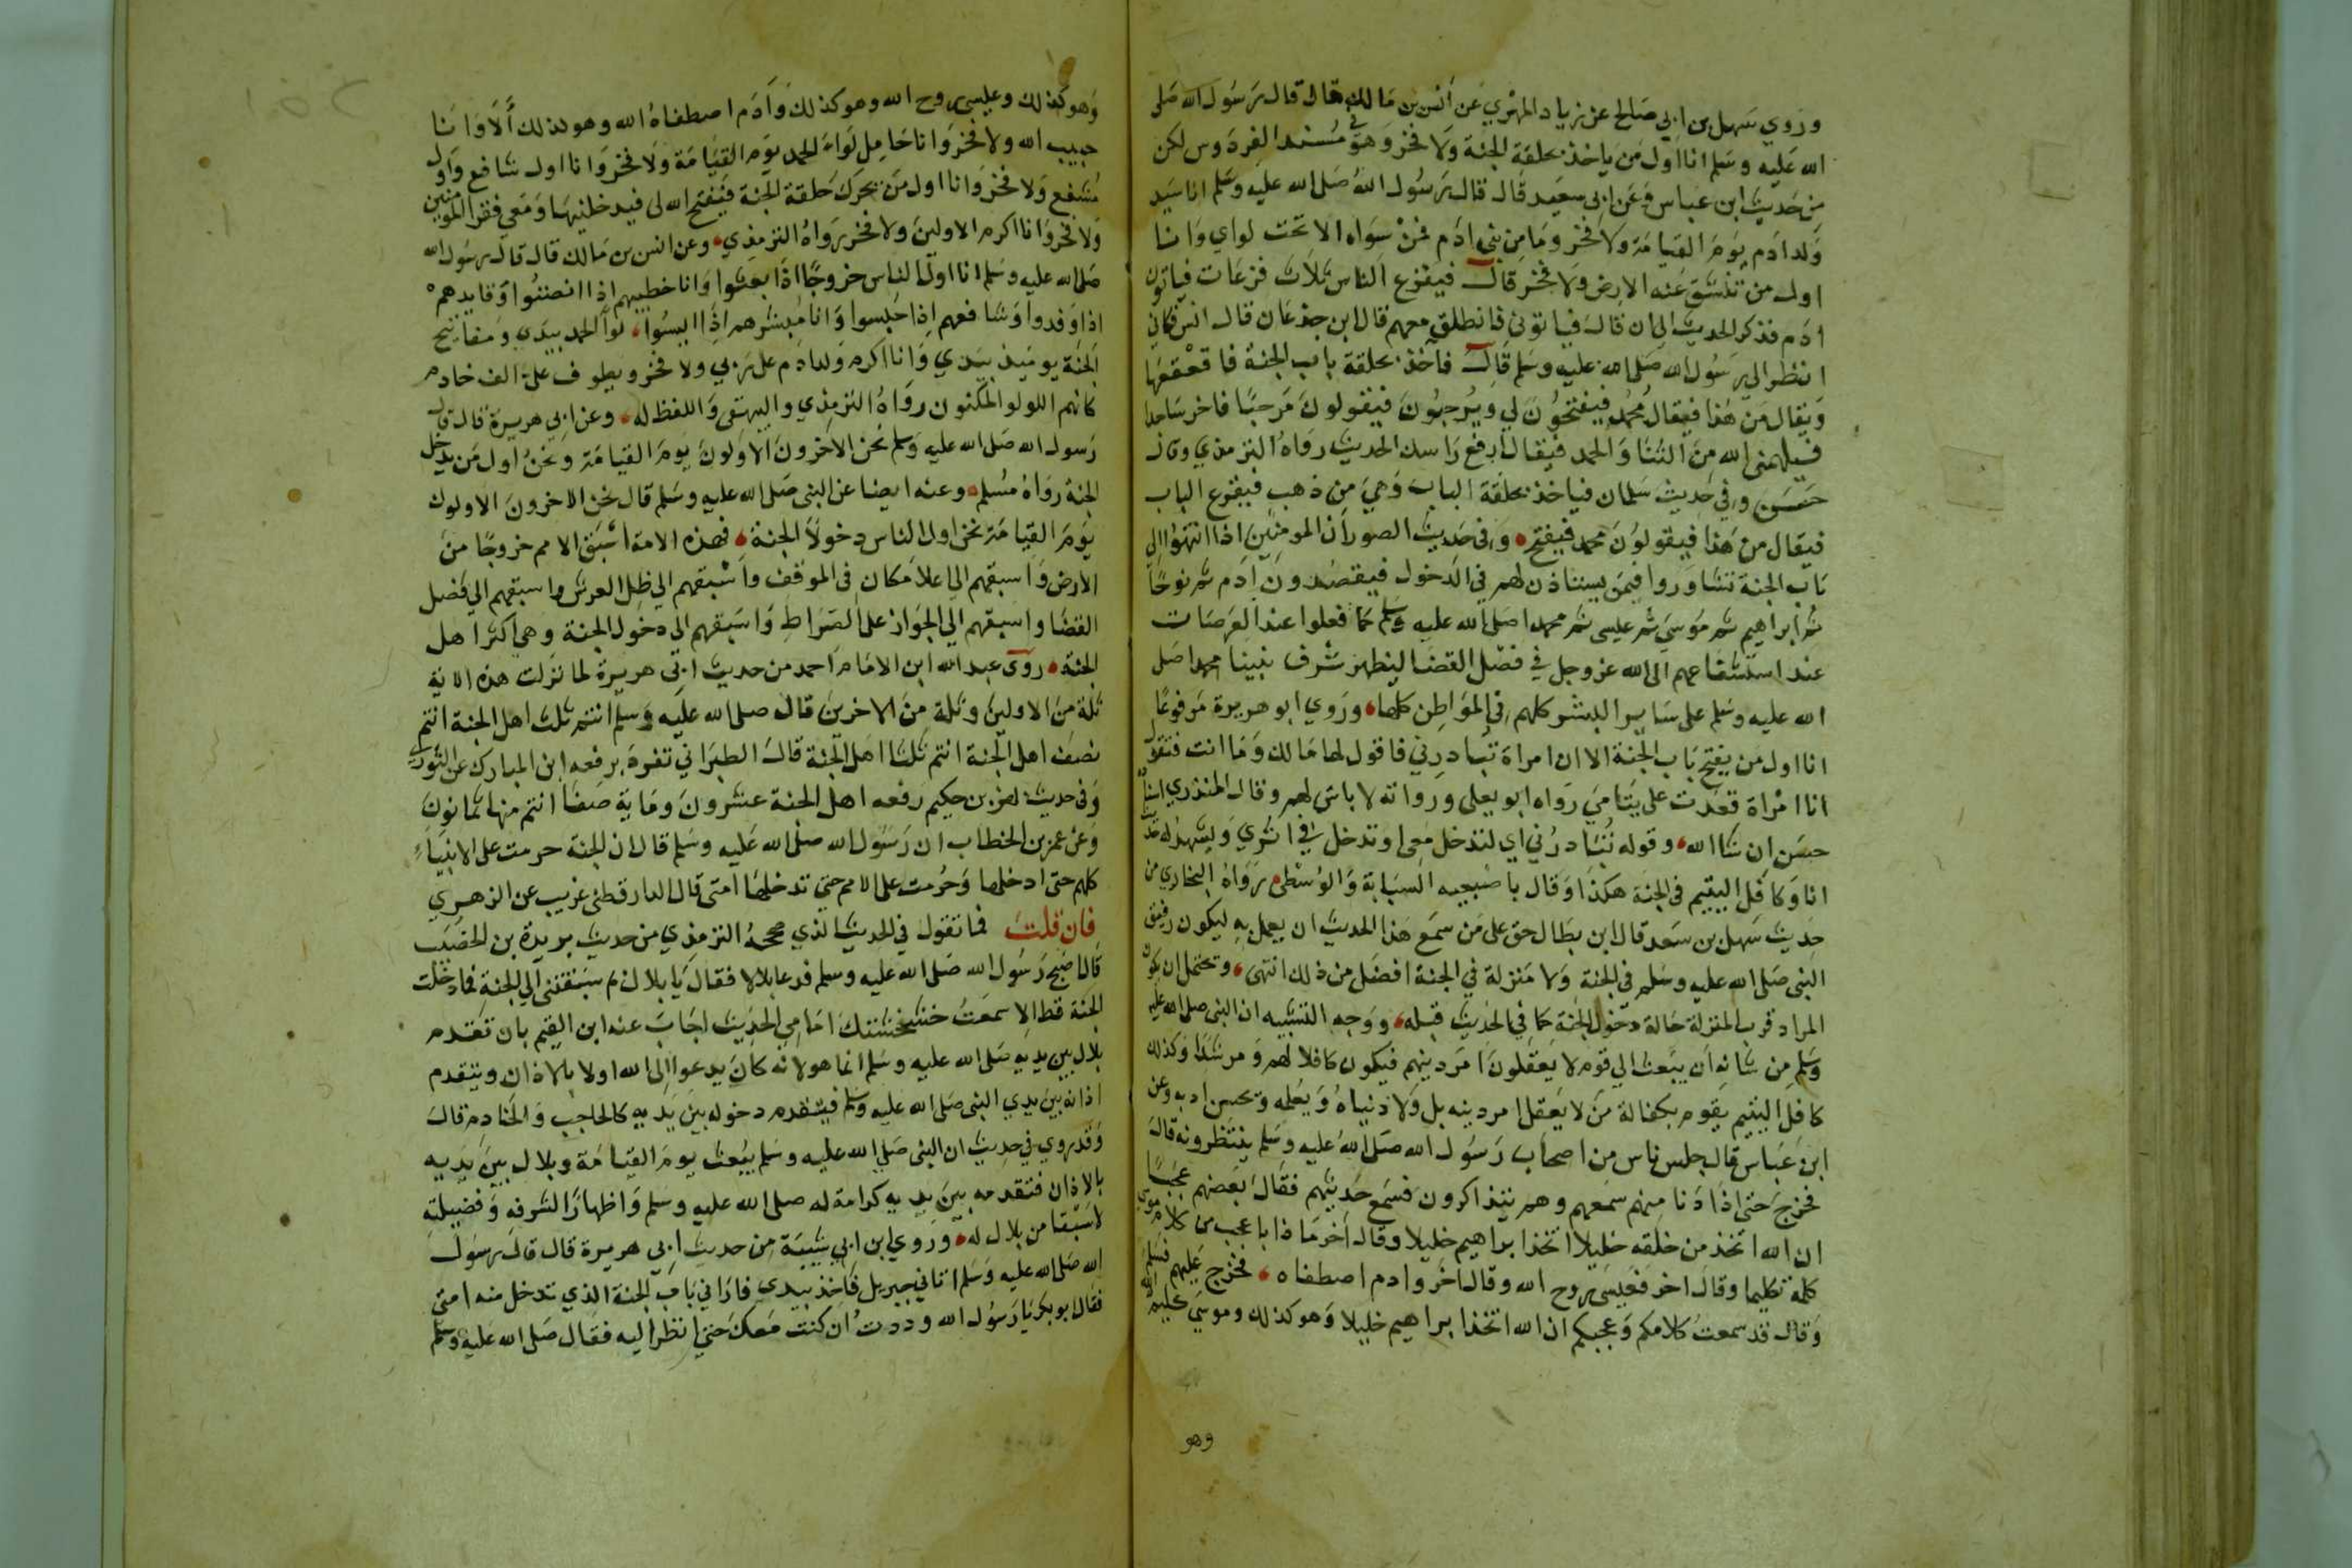 وروي سهل بن ابي صالح عن زياد المهري عن أنس بن مالك قال قال رسول الله صلى
الله عليه وسلم انا اول من ياخذ بحلقة الجنة ولا فخر وهو في مسند الفردوس لكن
من حديث ابن عباس وعن ابي سعيد قال قال رسول الله صلى الله عليه وسلم انا سيد
ولد ادم يوم القيامة ولا فخر وما من بني ادم فمن سواه الا تحت لواي وانا
اول من تنشق عنه الارض ولا فخر قال فيفزع الناس ثلاث فزعات فياتون
ادم فذكر الحديث الى ان قال فياتوني فانطلق معهم قال ابن جدعان قال انس فكاني
انظر الى رسول الله صلى الله عليه وسلم قال فآخذ بحلقة باب الجنة فاقعقعها
ويقال من هذا فيقال محمد فيفتحون لي ويرحبون فيقولون مرحبا فاخر ساجدا
فيلهمني الله من الثنا والحمد فيقال ارفع راسك الحديث رواه الترمذي وقال
حسن وفي حديث سلمان فياخذ بحلقة الباب وهي من ذهب فيقرع الباب
فيقال من هذا فيقولون محمد فيفتح وفي حديث الصور ان المومنين اذا انتهوا الي
باب الجنة تشاوروا فيمن يستاذن لهم في الدخول فيقصدون ادم ثم نوحا
ثم ابراهيم ثم موسى ثم عيسى ثم محمدا صلى الله عليه وسلم كما فعلوا عند العرصات
عند استشفاعهم الى الله عز وجل في فصل القضا ليظهر شرف نبينا محمد صلى
الله عليه وسلم على ساير البشر كلهم في المواطن كلها وروي ابو هريرة مرفوعا
انا اول من يفتح باب الجنة الا ان امراة تبادرني فاقول لها مالك وما انت فتقول
انا امراة قعدت على يتامي رواه ابو يعلى ورواته لا باس بهم وقال المنذري اسناده
حسن ان شا الله وقوله تبادرني اي لتدخل معي او تدخل في اثري ويشهد له حديث
انا وكافل اليتيم في الجنة هكذا وقال باصبعيه السبابة والوسطى رواه البخاري من
حديث سهل بن سعد قال ابن بطال حق على من سمع هذا الحديث ان يعمل به ليكون رفيق
النبي صلى الله عليه وسلم في الجنة ولا منزلة في الجنة افضل من ذلك انتهى ويحتمل ان يكون
المراد قرب المنزلة حالة دخول الجنة كما في الحديث قبله ووجه التشبيه ان النبي صلى الله عليه
وسلم من شانه ان يبعث الى قوم لا يعقلون امر دينهم فيكون كافلا لهم ومرشدا وكذلك
كافل اليتيم يقوم بكفالة من لا يعقل امر دينه بل ولا دنياه ويعلمه ويحسن ادبه وعن
ابن عباس قال جلس ناس من اصحاب رسول الله صلى الله عليه وسلم ينتظرونه قال
فخرج حتى اذا دنا منهم سمعهم وهم يتذاكرون فسمع حديثهم فقال بعضهم عجبا
ان الله اتخذ من خلقه خليلا اتخذ ابراهيم خليلا وقال آخر ماذا باعجب من كلام موسى
كلمه تكليما وقال اخر فعيسى روح الله وقال اخر وادم اصطفاه فخرج عليهم فسلم
وقال قد سمعت كلامكم وعجبكم ان الله اتخذ ابراهيم خليلا وهو كذلك وموسى كليم الله
وهو
وهو كذلك وعيسى روح الله وهو كذلك وآدم اصطفاه الله وهو كذلك ألا وانا
حبيب الله ولا فخر وانا حامل لواء الحمد يوم القيامة ولا فخر وانا اول شافع واول
مشفع ولا فخر وانا اول من يحرك حلقة الجنة فيفتح الله لي فيدخلنيها ومعي فقرا المومنين
ولا فخر وانا اكرم الاولين ولا فخر رواه الترمذي وعن انس بن مالك قال قال رسول الله
صلى الله عليه وسلم انا اول الناس خروجا اذا بعثوا وانا خطيبهم اذا انصتوا وقايدهم
اذا وفدوا وشافعهم اذا حبسوا وانا مبشرهم اذا ايسوا لوا الحمد بيدي ومفاتيح
الجنة يوميذ بيدي وانا اكرم ولد آدم على ربي ولا فخر ويطوف علي الف خادم
كانهم اللولو المكنون رواه الترمذي والبيهقي واللفظ له وعن ابي هريرة قال قال
رسول الله صلى الله عليه وسلم نحن الاخرون الاولون يوم القيامة ونحن اول من يدخل
الجنة رواه مسلم وعنه ايضا عن النبي صلى الله عليه وسلم قال نحن الاخرون الاولون
يوم القيامة نحن اول الناس دخولا الجنة فهذه الامة اسبق الامم خروجا من
الارض واسبقهم الى اعلا مكان في الموقف واسبقهم الى ظل العرش واسبقهم الى فصل
القضا واسبقهم الى الجواز على الصراط واسبقهم الى دخول الجنة وهي اكثر اهل
الجنة روى عبد الله ابن الامام احمد من حديث ابي هريرة لما نزلت هذه الاية
ثلة من الاولين وثلة من الاخرين قال صلى الله عليه وسلم انتم ثلث اهل الجنة انتم
نصف اهل الجنة انتم ثلثا اهل الجنة قال الطبراني تفرد برفعه ابن المبارك عن الثوري
وفي حديث بهز بن حكيم رفعه اهل الجنة عشرون وماية صفا انتم منها ثمانون
وعن عمر بن الخطاب ان رسول الله صلى الله عليه وسلم قال ان الجنة حرمت على الانبياء
كلهم حتى ادخلها وحرمت على الامم حتى تدخلها امتى قال الدارقطني غريب عن الزهري
فان قلت فما تقول في الحديث الذي صححه الترمذي من حديث بريدة بن الحصيب
قال اصبح رسول الله صلى الله عليه وسلم فدعا بلالا فقال يا بلال بم سبقتني الى الجنة فما دخلت
الجنة قط الا سمعت خشخشتك امامي الحديث اجاب عنه ابن القيم بان تقدم
بلال بين يديه صلى الله عليه وسلم انما هو لانه كان يدعوا الى الله اولا بالاذان ويتقدم
اذانه بين يدي النبي صلى الله عليه وسلم فيتقدم دخوله بين يديه كالحاجب والخادم قال
وقد روي في حديث ان النبي صلى الله عليه وسلم يبعث يوم القيامة وبلال بين يديه
بالاذان فتقدمه بين يديه كرامة له صلى الله عليه وسلم واظهارا لشرفه وفضيلته
لا سبقا من بلال له وروي ابن ابي شيبة من حديث ابي هريرة قال قال رسول
الله صلى الله عليه وسلم اتاني جبريل فاخذ بيدي فاراني باب الجنة الذي تدخل منه امتي
فقال ابو بكر يا رسول الله وددت ان كنت معك حتى انظر اليه فقال صلى الله عليه وسلم